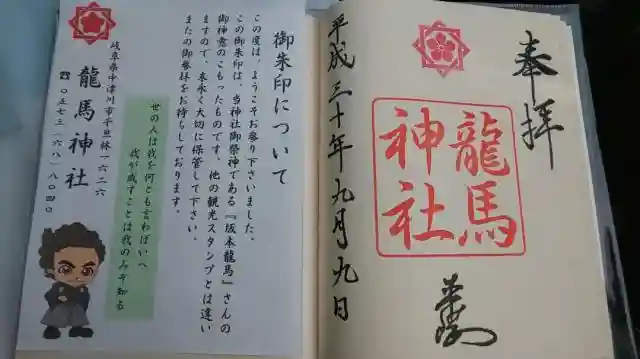 奉拝
龍馬
神社
平成三十年九月九日
御朱印について
この度は、ようこそお参り下さいました。
この御朱印は、当神社御祭神である『坂本龍馬』さんの
御神意のこもったものです。他の観光スタンプとは違い
ますので、末永く大切に保管して下さい。
またの御参拝をお待ちしております。
世の人は我を何とも言わばいへ
我が成すことは我のみぞ知る
岐阜県中津川市千旦林一六二六
龍馬神社
☎〇五七三-六八-八〇四〇